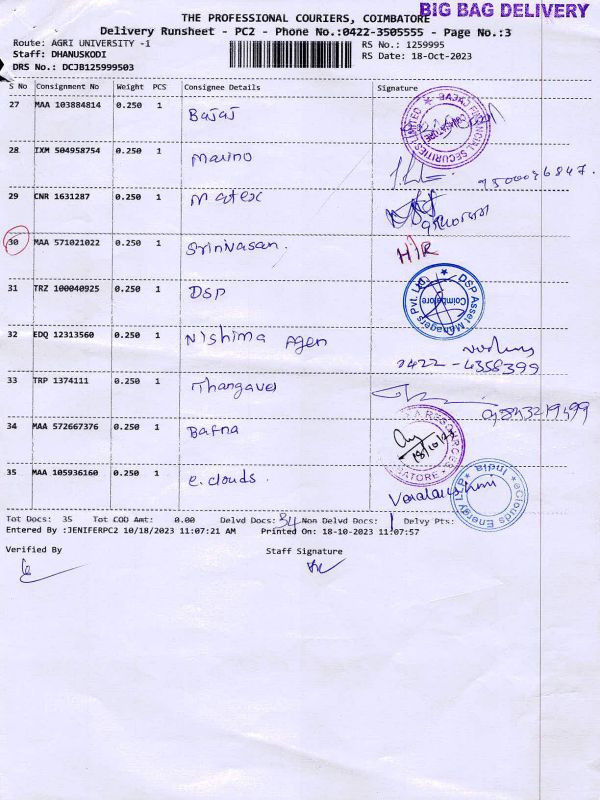 BIG BAG DELIVERY
THE PROFESSIONAL COURIERS, COIMBATORE
Delivery Runsheet - PC2 - Phone No.:0422-3505555 - Page No.:3
Route: AGRI UNIVERSITY -1
RS No.: 1259995
Staff: DHANUSKODI
RS Date: 18-Oct-2023
DRS No.: DCJB125999503
S No Consignment No Weight PCS Consignee Details Signature
27 MAA 103884814 0.250 1 Bajaj
BAJAJ FINANCIAL SECURITIES LIMITED
28 IXM 504958754 0.250 1 Marino
9500046847.
29 CNR 1631287 0.250 1 Matex
30 MAA 571021022 0.250 1 Srinivasan.
H/R
31 TRZ 100040925 0.250 1 DSP
DSP Asset Managers Pvt. Ltd.
Coimbatore
32 EDQ 12313560 0.250 1 Nishima Agen
0422-4358399
33 TRP 1374111 0.250 1 Thangavel
34 MAA 572667376 0.250 1 Bafna
18/10/23
35 MAA 105936160 0.250 1 e.clouds.
Varalakshmi
eClouds Energy
India
Tot Docs: 35 Tot COD Amt: 0.00 Delvd Docs: 34 Non Delvd Docs: 1 Delvy Pts:
Entered By :JENIFERPC2 10/18/2023 11:07:21 AM Printed On: 18-10-2023 11:07:57
Verified By Staff Signature